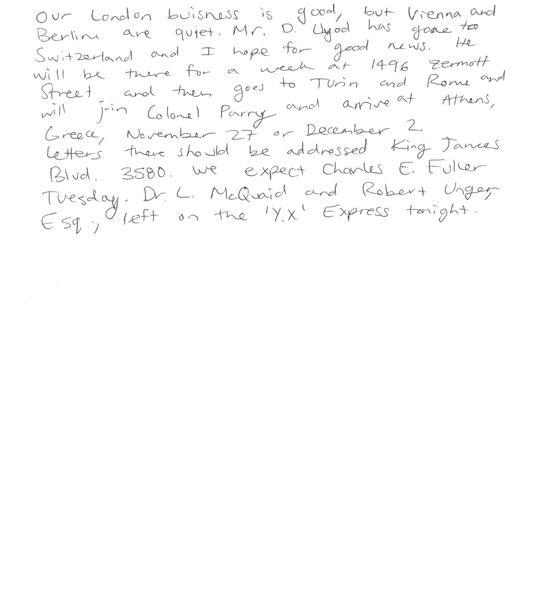 Our London buisness is good, but Vienna and
Berlin are quiet. Mr. D. Llyod has gone to
Switzerland and I hope for good news. He
will be there for a week at 1496 Zermott
Street and then goes to Turin and Rome and
will join Colonel Parry and arrive at Athens,
Greece, November 27 or December 2.
Letters there should be addressed King James
Blvd. 3580. We expect Charles E. Fuller
Tuesday. Dr. L. McQuaid and Robert Unger,
Esq., left on the 'Y.X' Express tonight.